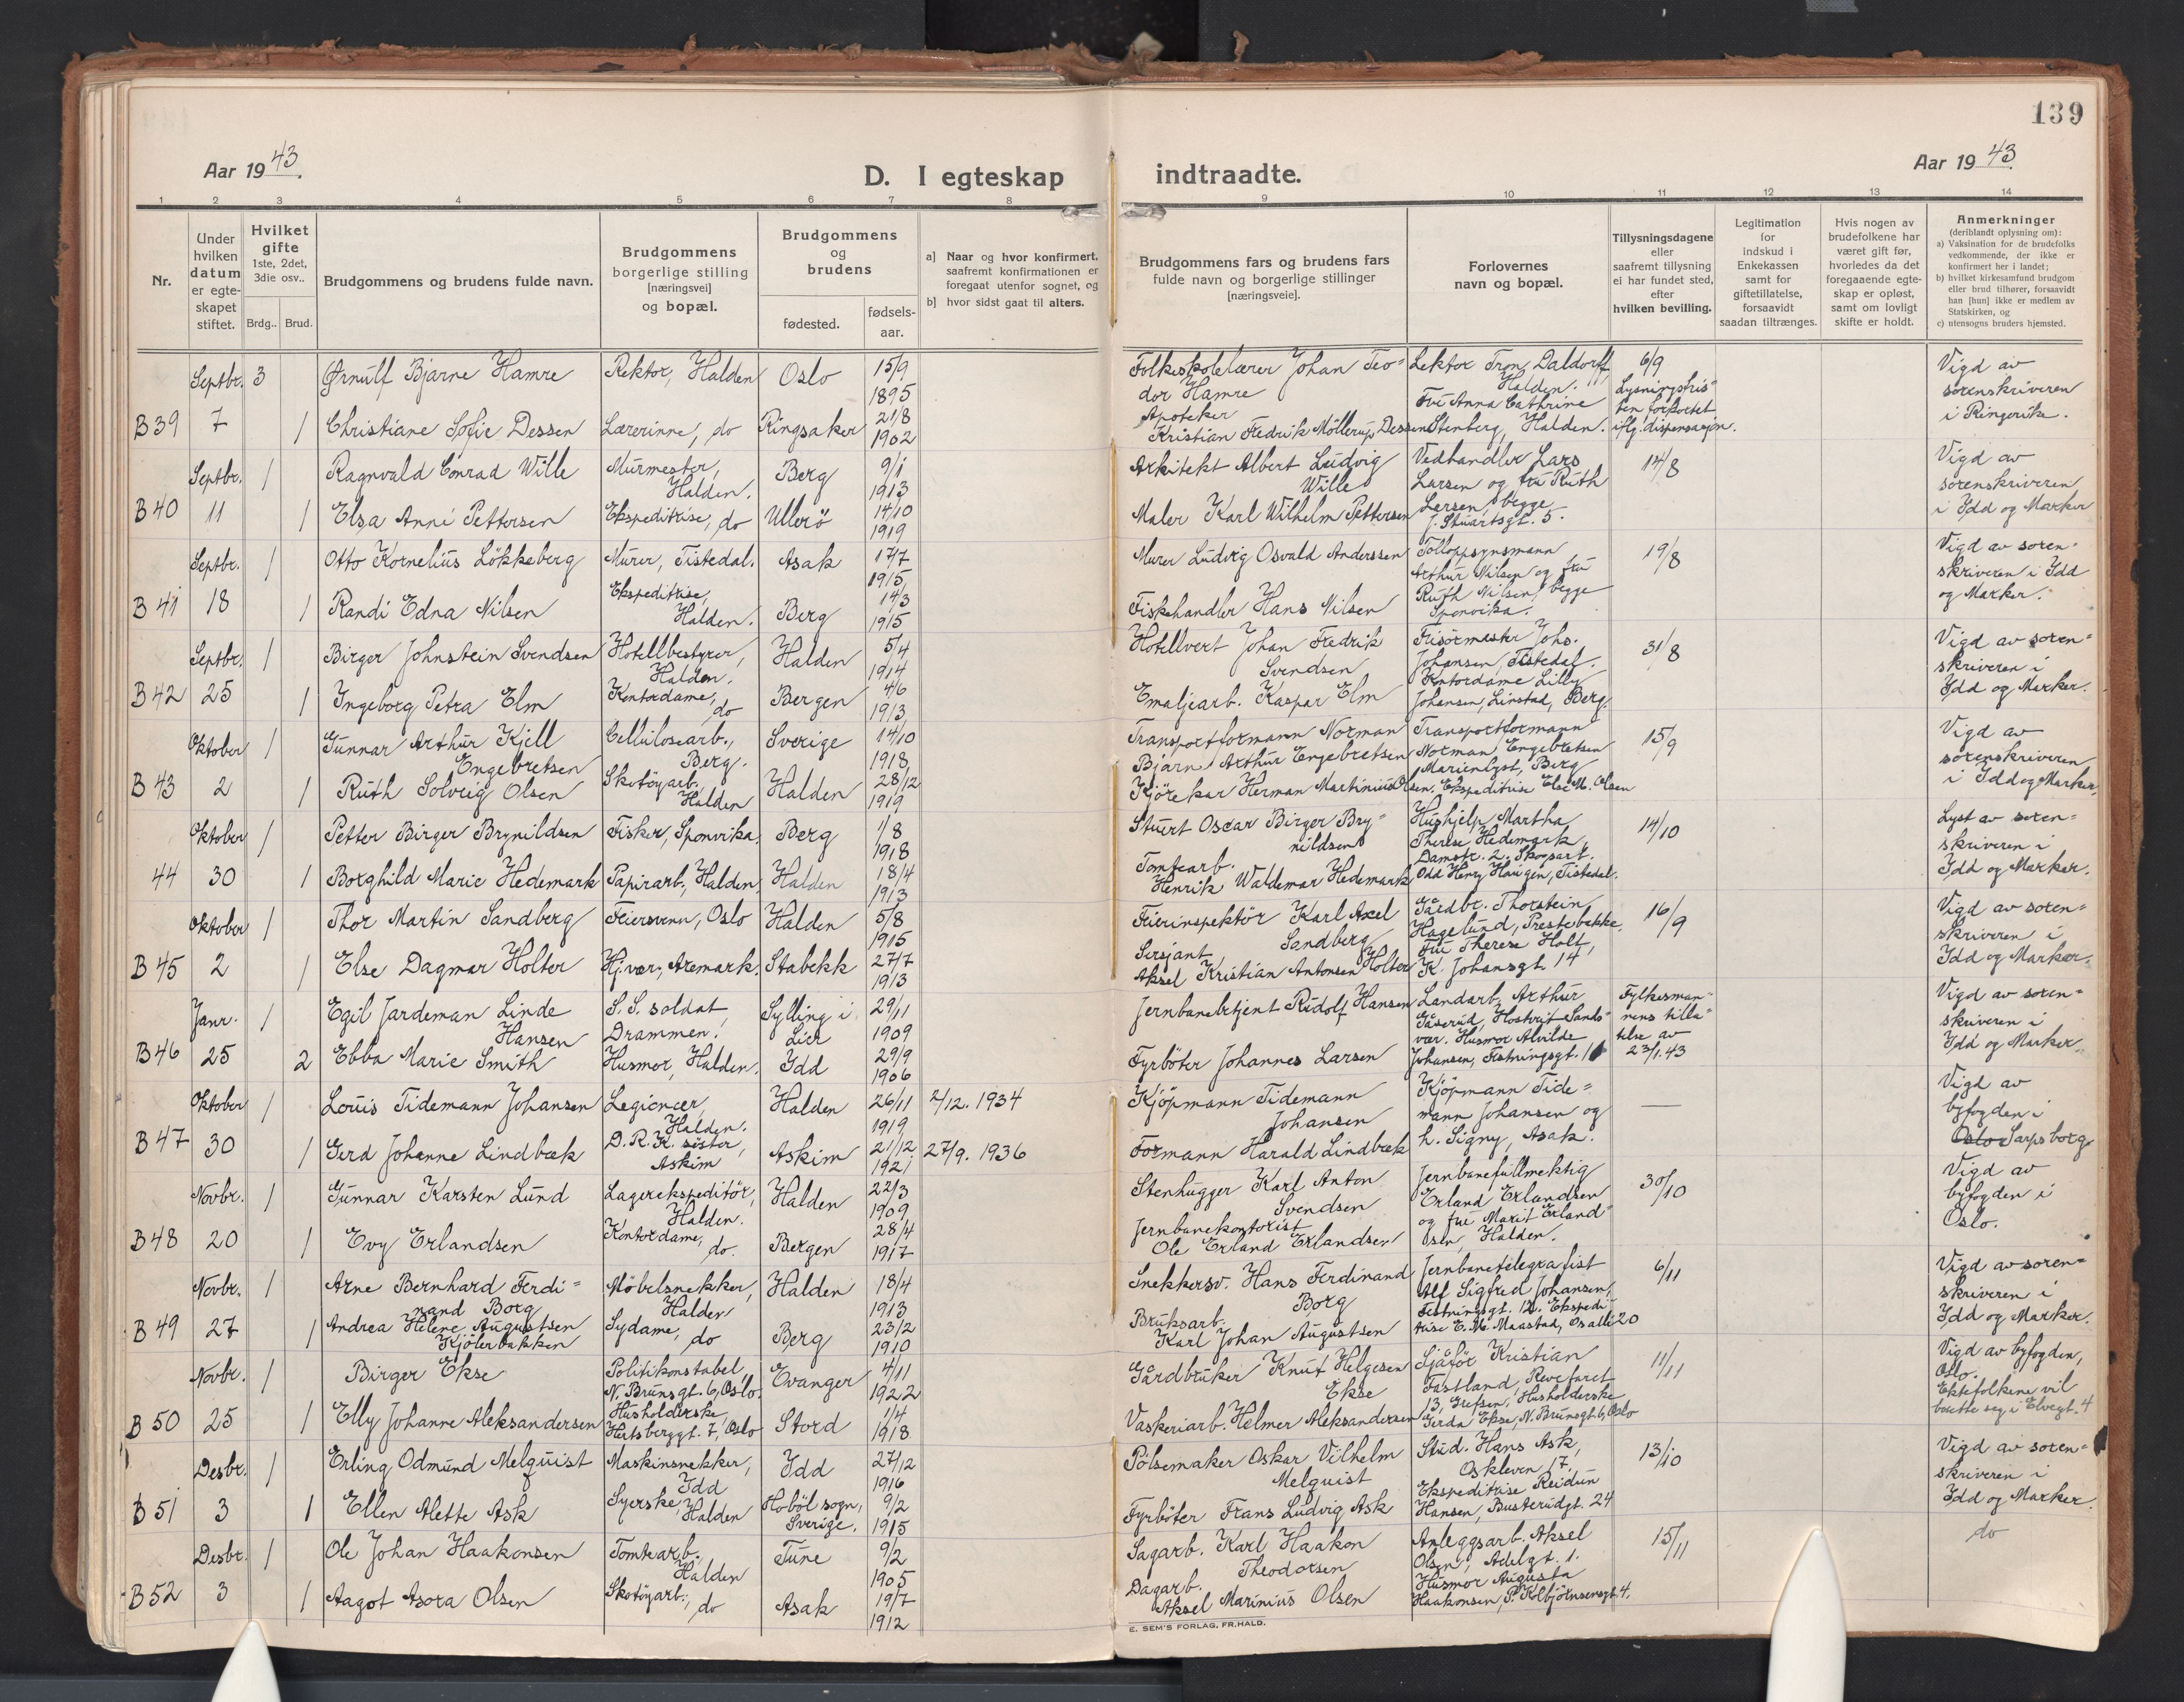 139
Aar 1943.
D. I egteskap indtraadte.
Aar 1943
1 2 3 4 5 6 7 8 9 10 11 12 13 14
Nr.
Under hvilken datum er egteskapet stiftet.
Hvilket gifte 1ste, 2det, 3die osv..
Brdg.. Brud.
Brudgommens og brudens fulde navn.
Brudgommens borgerlige stilling [næringsvei] og bopæl.
Brudgommens og brudens
fødested.
fødselsaar.
a] Naar og hvor konfirmert, saafremt konfirmationen er foregaat utenfor sognet, og
b] hvor sidst gaat til alters.
Brudgommens fars og brudens fars fulde navn og borgerlige stillinger [næringsveie].
Forlovernes navn og bopæl.
Tillysningsdagene eller saafremt tillysning ei har fundet sted, efter hvilken bevilling.
Legitimation for indskud i Enkekassen samt for giftetillatelse, forsaavidt saadan tiltrænges.
Hvis nogen av brudefolkene har været gift før, hvorledes da det foregaaende egteskap er opløst, samt om lovligt skifte er holdt.
Anmerkninger (deriblandt oplysning om):
a) Vaksination for de brudefolks vedkommende, der ikke er konfirmert her i landet;
b) hvilket kirkesamfund brudgom eller brud tilhører, forsaavidt han [hun] ikke er medlem av Statskirken, og
c) utensogns bruders hjemsted.
Septbr. 3 Ørnulf Bjarne Hamre Rektor, Halden Oslo 15/9 1895 Folkeskolelærer Johan Teodor Hamre Lektor Tron Daldorff, Halden. 6/9 Vigd av sorenskriveren i Ringerike.
B 39 7 1 Christiane Sofie Dessen Lærerinne, do Ringsaker 21/8 1902 Apoteker Kristian Fredrik Möllerup Dessen Fru Anna Cathrine Stenberg, Halden. Lysningsfristen forkortet iflg. dispensasjon.
Septbr. 1 Ragnvald Conrad Wille Murmester, Halden. Berg 9/1 1913 Arkitekt Albert Ludvig Wille Vedhandler Lars Larsen og fru Ruth 14/8 Vigd av sorenskriveren i Idd og Marker
B 40 11 1 Elsa Anni Pettersen Ekspeditrise, do Ullerö 14/10 1919 Maler Karl Wilhelm Pettersen Larsen, begge J. Stuartsgt. 5.
Septbr. 1 Otto Kornelius Lökkeberg Murer, Tistedal. Asak 17/7 1915 Murer Ludvig Osvald Anderssen Tolloppsynsmann Arthur Nilsen og fru 19/8 Vigd av sorenskriveren i Idd og Marker.
B 41 18 1 Randi Edna Nilsen Ekspeditrise, Halden. Berg 14/3 1915 Fiskehandler Hans Nilsen Ruth Nilsen, begge Sponvika.
Septbr. 1 Birger Johnstein Svendsen Hotellbestyrer, Halden. Halden 5/4 1914 Hotellvert Johan Fredrik Svendsen Frisörmester Johs. Johansen, Tistedal. 31/8 Vigd av sorenskriveren i Idd og Marker.
B 42 25 1 Ingeborg Petra Elm Kontordame, do Bergen 4/6 1913 Emaljearb. Kaspar Elm Kontordame Lilly Johansen, Linstad, Berg.
Oktober 1 Gunnar Arthur Kjell Engebretsen Cellulosearb., Berg. Sverige 14/10 1918 Transportformann Norman Bjarne Arthur Engebretsen Transportformann Norman Engebretsen Marienlyst, Berg 15/9 Vigd av sorenskriveren i Idd og Marker.
B 43 2 1 Ruth Solveig Olsen Skotöyarb. Halden Halden 28/12 1919 Kjörekar Herman Martinius Olsen. Ekspeditrise Else M. Olsen
Oktober 1 Petter Birger Brynildsen Fisker, Sponvika. Berg 1/8 1918 Stuert Oscar Birger Brynildsen Hushjelp Martha Therese Hedemark, Damstr. 2. 14/10 Lyst av sorenskriveren i Idd og Marker.
44 30 1 Borghild Marie Hedemark Papirarb., Halden. Halden 18/4 1913 Tomtearb. Henrik Waldemar Hedemark Skogsarb. Odd Henry Haugen, Tistedal.
Oktober 1 Thor Martin Sandberg Feiersvenn, Oslo Halden 5/8 1915 Feierinspektör Karl Axel Sandberg Gårdbr. Thorstein Hagelund, Prestebakke, 16/9 Vigd av sorenskriveren i Idd og Marker.
B 45 2 1 Else Dagmar Holter Hj.vær, Aremark. Stabekk 27/7 1913 Sersjant Aksel Kristian Antonsen Holter Fru Therese Holt, K. Johansgt. 14
Janr. 1 Egil Jardeman Linde Hansen S. S. soldat, Drammen. Sylling i Lier 29/11 1909 Jernbanebetjent Rudolf Hansen Landarb. Arthur Gåserud, Hostvet Sandsvær. Fylkesmannens tillatelse av 23/1.43 Vigd av sorenskriveren i Idd og Marker
B 46 25 2 Ebba Marie Smith Husmor, Halden. Idd 29/9 1906 Fyrböter Johannes Larsen Husmor Alvilde Johansen, Festningsgt. 16
Oktober 1 Louis Tidemann Johansen Legionær, Halden. Halden 26/11 1919 2/12. 1934 Kjöpmann Tidemann Johansen Kjöpmann Tidemann Johansen og — Vigd av byfogden i Oslo Sarpsborg
B 47 30 1 Gerd Johanne Lindbæk D. R. K. söster, Askim Askim 21/12 1921 27/9. 1936 Formann Harald Lindbæk h. Signy, Asak.
Novbr. 1 Gunnar Karsten Lund Lagerekspeditör, Halden. Halden 22/3 1909 Stenhugger Karl Anton Svendsen Jernbanefullmektig Erland Erlandsen 30/10 Vigd av byfogden i Oslo.
B 48 20 1 Evy Erlandsen Kontordame, do. Bergen 28/4 1917 Jernbanekontorist Ole Erland Erlandsen og fru Marit Erlandsen, Halden.
Novbr. 1 Arne Bernhard Ferdinand Borg Möbelsnekker, Halden Halden 18/4 1913 Snekkersv. Hans Ferdinand Borg Jernbanetelegrafist Alf Sigfred Johansen, Festningsgt. 12. 6/11 Vigd av sorenskriveren i Idd og Marker.
B 49 27 1 Andrea Helene Augustsen Kjölerbakken Sydame, do Berg 23/2 1910 Bruksarb. Karl Johan Augustsen Ekspeditrise E. M. Maastad, Os allé 20
Novbr. 1 Birger Ekse Politikonstabel, N. Brunsgt. 6, Oslo. Evanger 4/11 1922 Gårdbruker Knut Helgesen Ekse Sjåför Kristian Fastland, Revefaret 13, Grefsen, 11/11 Vigd av byfogden, Oslo. Ektefolkene vil bosette seg i Elvegt. 4
B 50 25 1 Elly Johanne Aleksandersen Husholderske, Hertsberggt. 7, Oslo Stord 1/4 1918 Vaskeriarb. Helmer Aleksandersen Husholderske Gerda Ekse, N. Brunsgt. 6, Oslo
Desbr. 1 Erling Odmund Melquist Maskinsnekker, Idd Idd 27/12 1916 Pölsemaker Oskar Vilhelm Melquist Stud. Hans Ask, Oskleven 17, 13/10 Vigd av sorenskriveren i Idd og Marker.
B 51 3 1 Ellen Alette Ask Syerske, Halden Hoböl sogn, Sverige. 9/2 1915 Fyrböter Frans Ludvig Ask Ekspeditrise Reidun Hansen, Busterudgt. 24
Desbr. 1 Ole Johan Haakonsen Tomtearb. Halden Tune 9/2 1905 Sagarb. Karl Haakon Theodorsen Anleggsarb. Aksel Olsen, Adelgt. 1. 15/11 do
B 52 3 1 Aagot Asora Olsen Skotöyarb., do Asak 19/7 1912 Dagarb. Aksel Marinius Olsen Husmor Augusta Haakonsen, P. Kolbjörnsensgt. 4.
E. SEM'S FORLAG, FR.HALD.